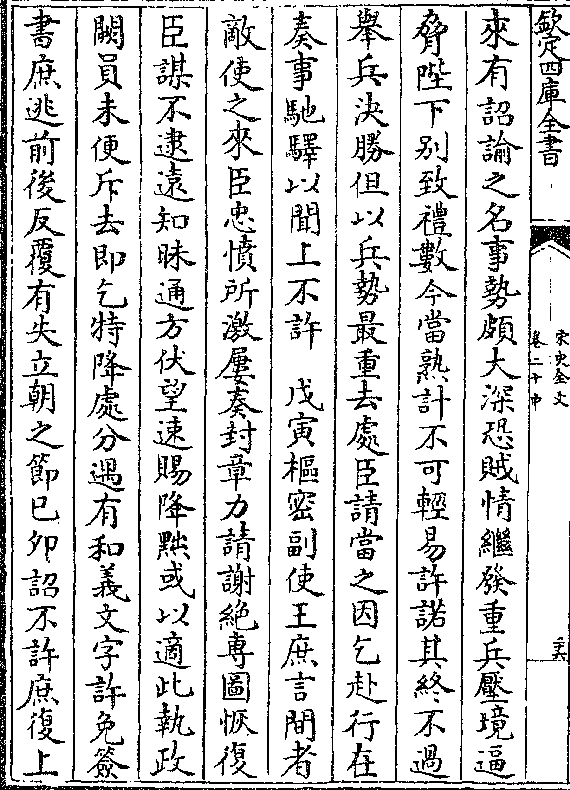 欽定四庫全書
宋史全文
卷二十中
來有詔諭之名事勢頗大深恐賊情繼發重兵壓境逼
脅陛下别致禮數今當熟計不可輕易許諾其終不過
舉兵決勝但以兵勢最重去處臣請當之因乞赴行在
奏事馳驛以聞上不許　戊寅樞密副使王庶言間者
敵使之來臣忠憤所激屢奏封章力請謝絶専圖恢復
臣謀不逮逺知昧通方伏望速賜降黜或以適此執政
闕員未便斥去即乞特降處分遇有和義文字許免簽
書庶逃前後反覆有失立朝之節已夘詔不許庶復上